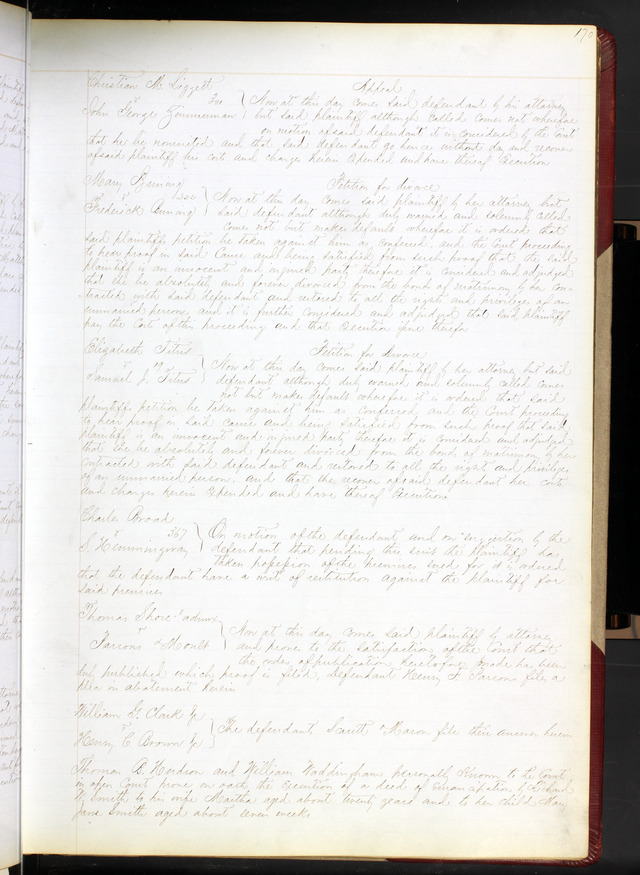 170
Christian M. Liggett Appeal
vs Now at this day comes said defendant by his attorney
John George Zimmerman but said plaintiff although called comes not wherefore
on motion of said defendant it is considered by the Court
that he be nonsuited and that said defendant go hence without day and recover
of said plaintiff his costs and charges herein expended and have thereof Execution
Mary Petition for divorce
vs Now at this day comes said plaintiff by her attorney but
Frederick said defendant although duly warned and solemnly called
comes not but makes default wherefore it is ordered that
said plaintiffs petition be taken against him as confessed and the Court proceeding
to hear proof in said Cause and being satisfied from such proof that the said
plaintiff is an innocent and injured party therefore it is considered and adjudged
that she be absolutely and forever divorced from the bonds of matrimony by her con-
tracted with said defendant and restored to all the rights and privileges of an
unmarried person, and it is further considered and adjudged that said plaintiff
pay the Costs of this proceeding and that Execution issue therefor
Elizabeth Titus Petition for divorce
vs Now at this day comes said plaintiff by her attorney but said
Samuel J. Titus defendant although duly warned and solemnly called comes
not but makes default wherefore it is ordered that said
plaintiffs petition be taken against him as confessed and the Court proceeding
to hear proof in said cause and being satisfied from such proof that said
plaintiff is an innocent and injured party therefore it is considered and adjudged
that she be absolutely and forever divorced from the bonds of matrimony by her
contracted with said defendant and restored to all the rights and privileges
of an unmarried person, and that she recover of said defendant her costs
and charges herein expended and have thereof Execution
Charles Broad
vs 367 On motion of the defendant and on suggestion by the
S. Hemmingway defendant that pending this suit the plaintiff has
taken possession of the premises sued for it is ordered
that the defendant have a writ of restitution against the plaintiff for
said premises
Thomas Shore admr
vs Now at this day comes said plaintiff by attorney
Parsons & Moult and proves to the satisfaction of the Court that
the order of publication heretofore made has been
duly published which proof is filed, defendant Henry F. Parsons files a
plea in abatement herein
William G. Clark Jr
vs The defendants & Mason file their answer herein
Henry C Brown Jr
Thomas B. Hudson and William Waddingham personally known to the Court
in open Court prove on oath the execution of a deed of emancipation by Richard
Smith to his wife Martha aged about twenty years and to her child Mary
Jane Smith aged about seven weeks